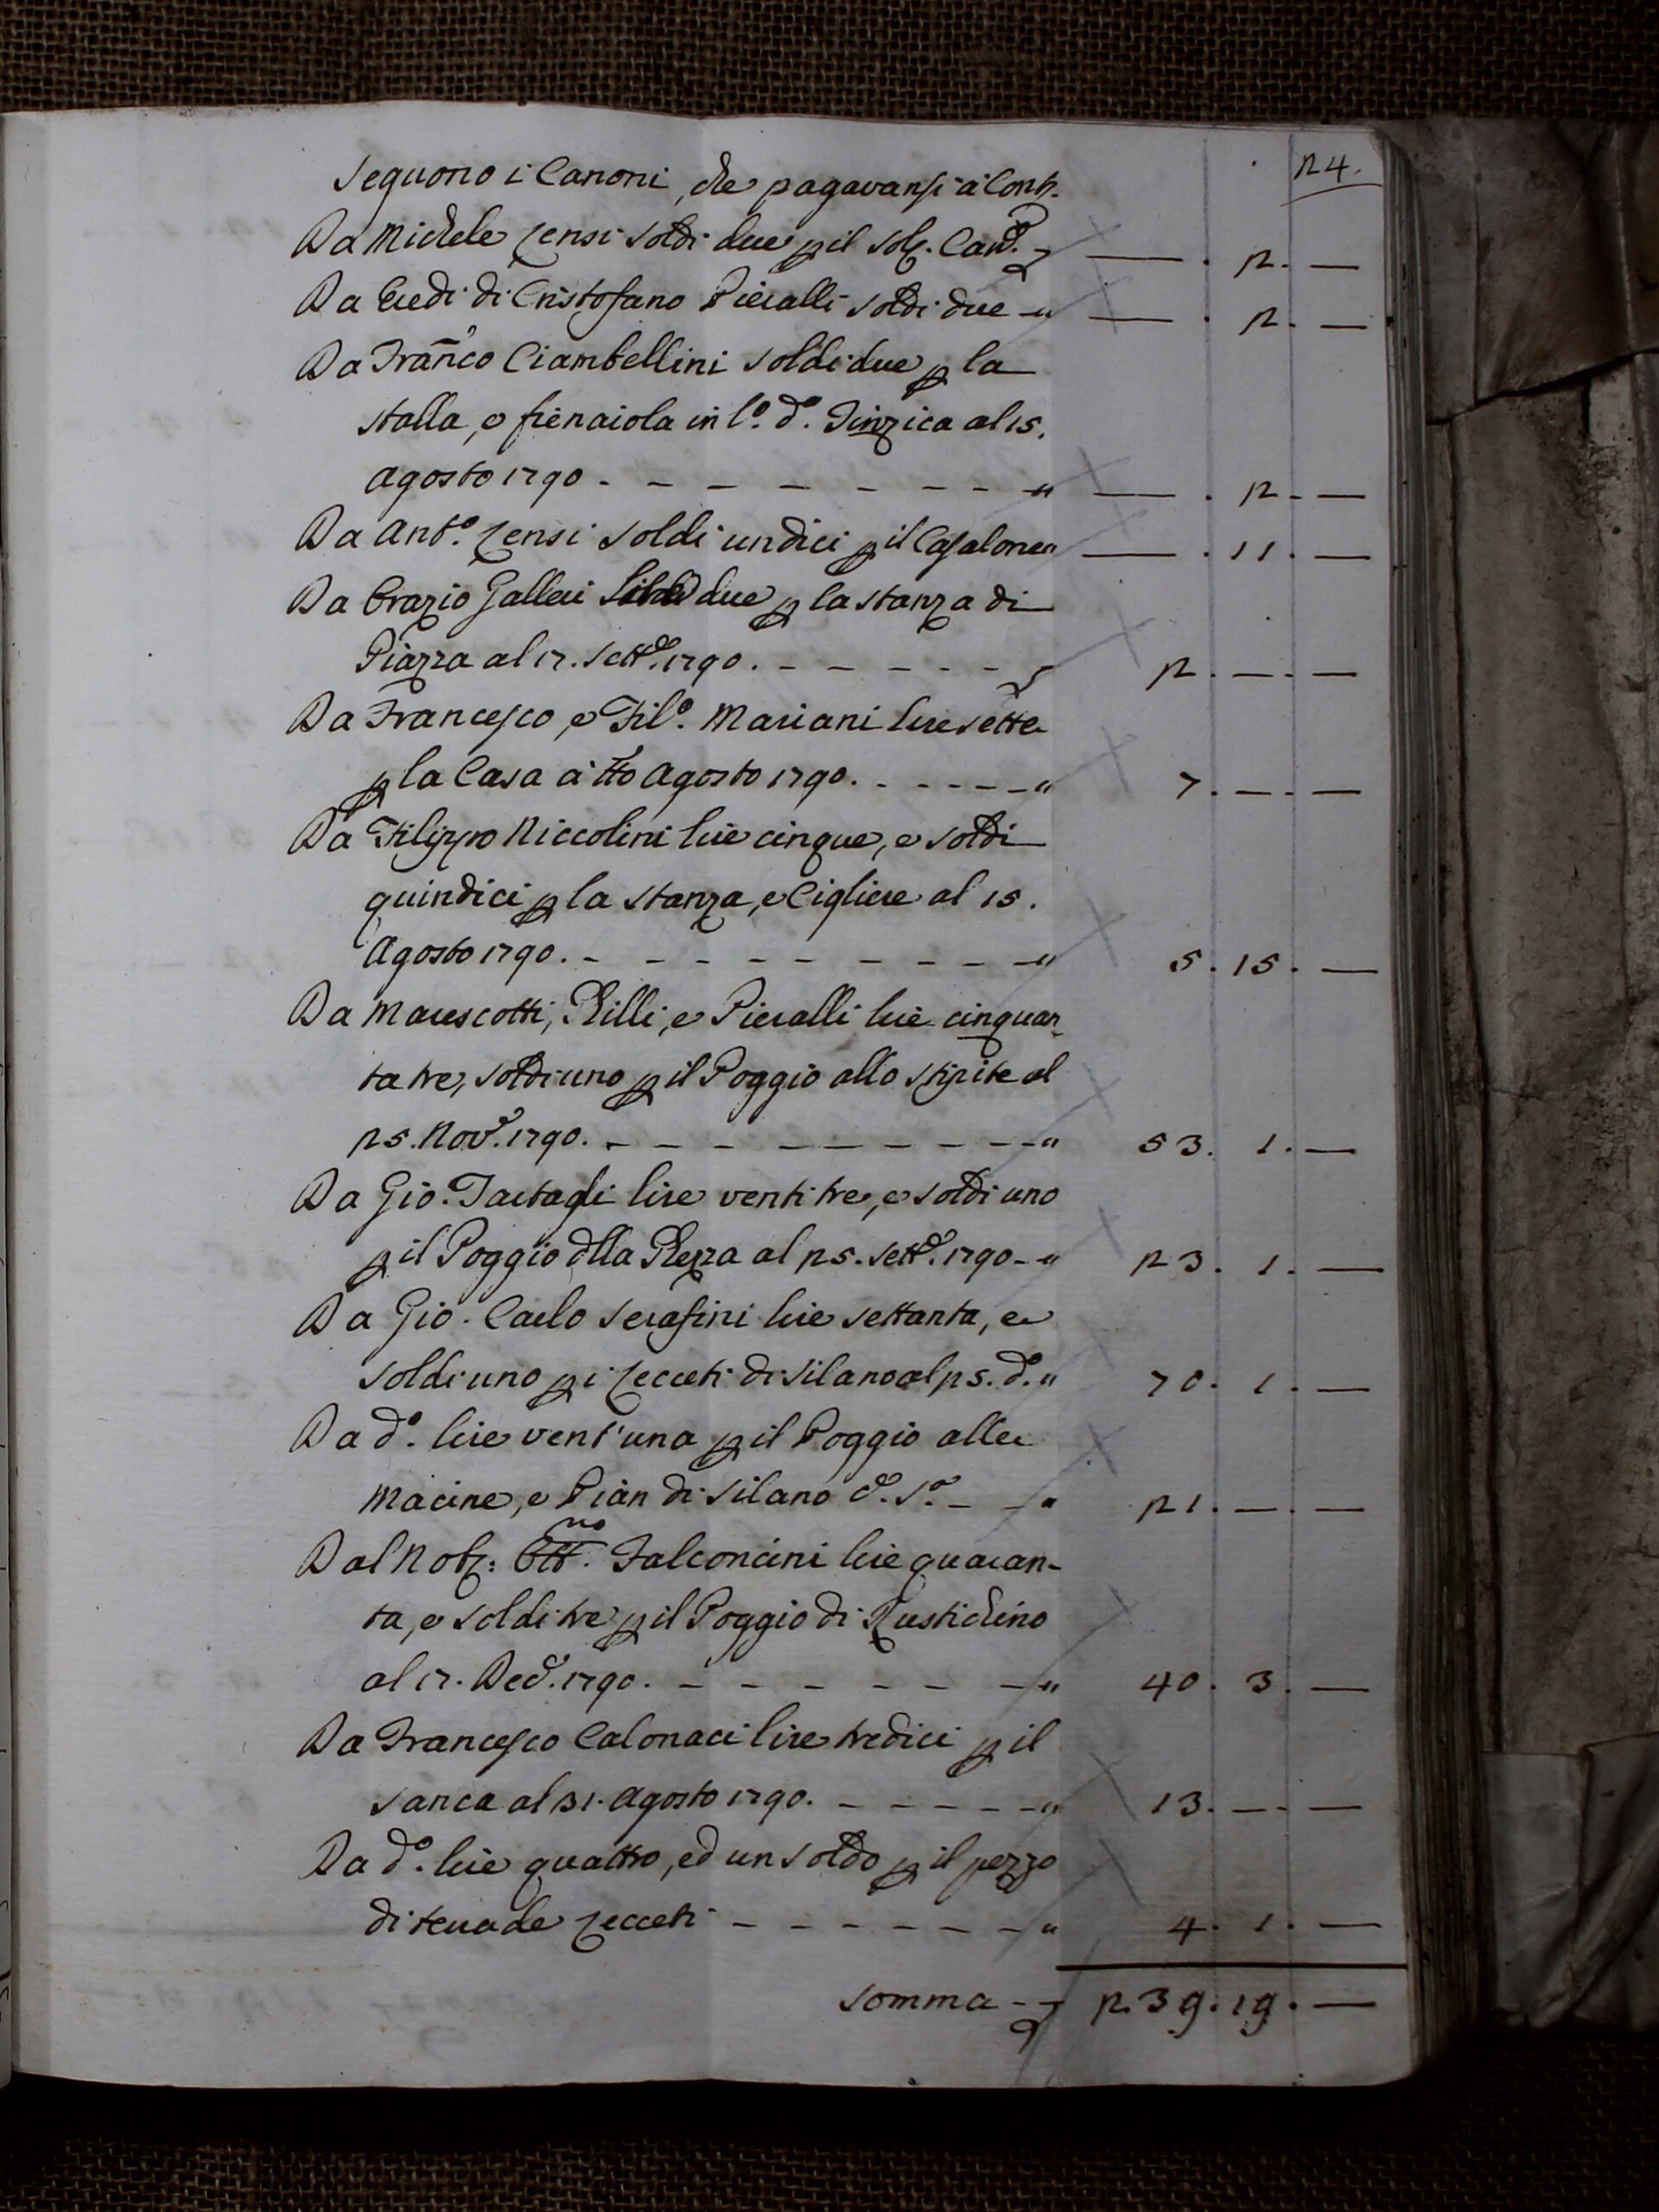 24.
Seguono i Canoni, che pagavansi a Cont.
Da Michele Censi soldi due p il sol. Can.e — . 2. —
Da Eredi di Cristofano Pieralli soldi due — . 2. —
Da Franco Ciambellini soldi due p la
stalla, e fienaiola in l.o d.o Sinzica al 15.
Agosto 1790. — . 2. —
Da Ant.o Censi soldi undici p il Casalone — . 11. —
Da Orazio Galleri due p la stanza di
Piazza al 17. Sett.e 1790. 2. — . —
Da Francesco, e Fil.o Mariani lire sette
p la Casa a tto Agosto 1790. 7. — . —
Da Filippo Niccolini lire cinque, e soldi
quindici p la stanza, e Cigliere al 15.
Agosto 1790. 5. 15. —
Da Marescotti, Billi, e Pieralli lire cinquan
ta tre, soldi uno p il Poggio allo Stipite al
25. Nov.e 1790. 53. 1. —
Da Gio. Tartagli lire venti tre, e soldi uno
p il Poggio dlla al 25. Sett.e 1790 23. 1. —
Da Gio. Carlo Serafini lire settanta, e
soldi uno p i Cecceti di Silano al 25. d.o 70. 1. —
Da d.o lire vent'una p il Poggio alle
Macine, e Pian di Silano d.o S.o 21. — . —
Dal Nob: Ott.no Falconcini lire quaran-
ta, e soldi tre p il Poggio di Rustichino
al 17. Dec.e 1790. 40. 3. —
Da Francesco Calonaci lire tredici p il
Sanca al 31. Agosto 1790. 13. — . —
Da d.o lire quattro, ed un soldo p il pezzo
di terra de Cecceti 4. 1. —
Somma 239. 19. —